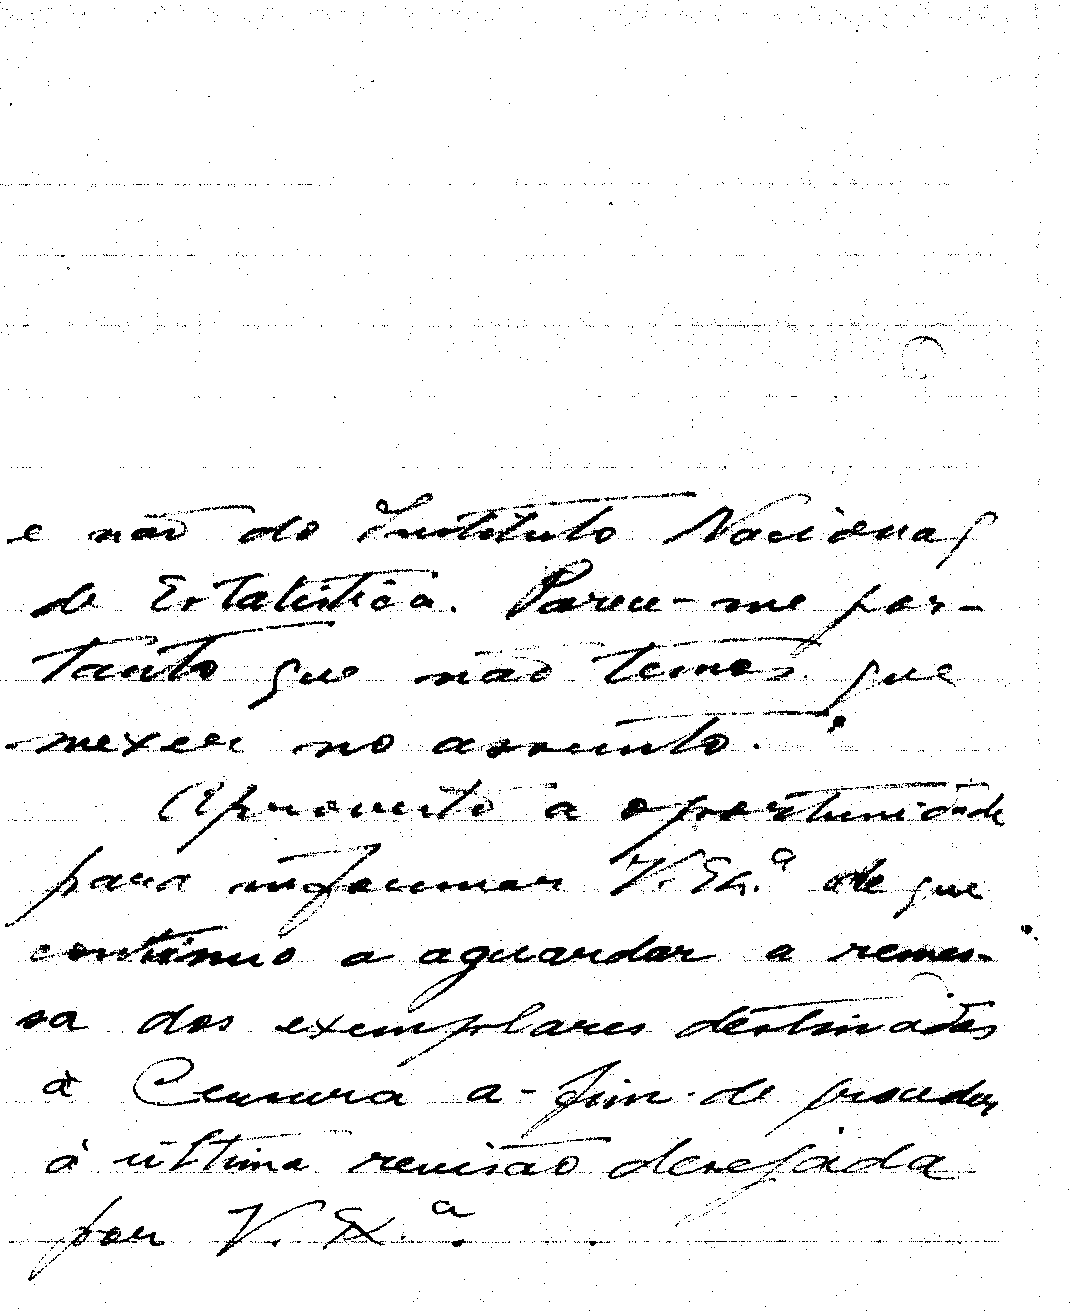 e não do Instituto Nacional
de Estatística. Parece-me por-
tanto que não temos que
mexer no assunto.
Aproveito a oportunidade
para informar V. Ex.ª de que
continuo a aguardar a remes-
sa dos exemplares destinados
à Censura a-fim-de proceder
à última revisão desejada
por V. Ex.ª.